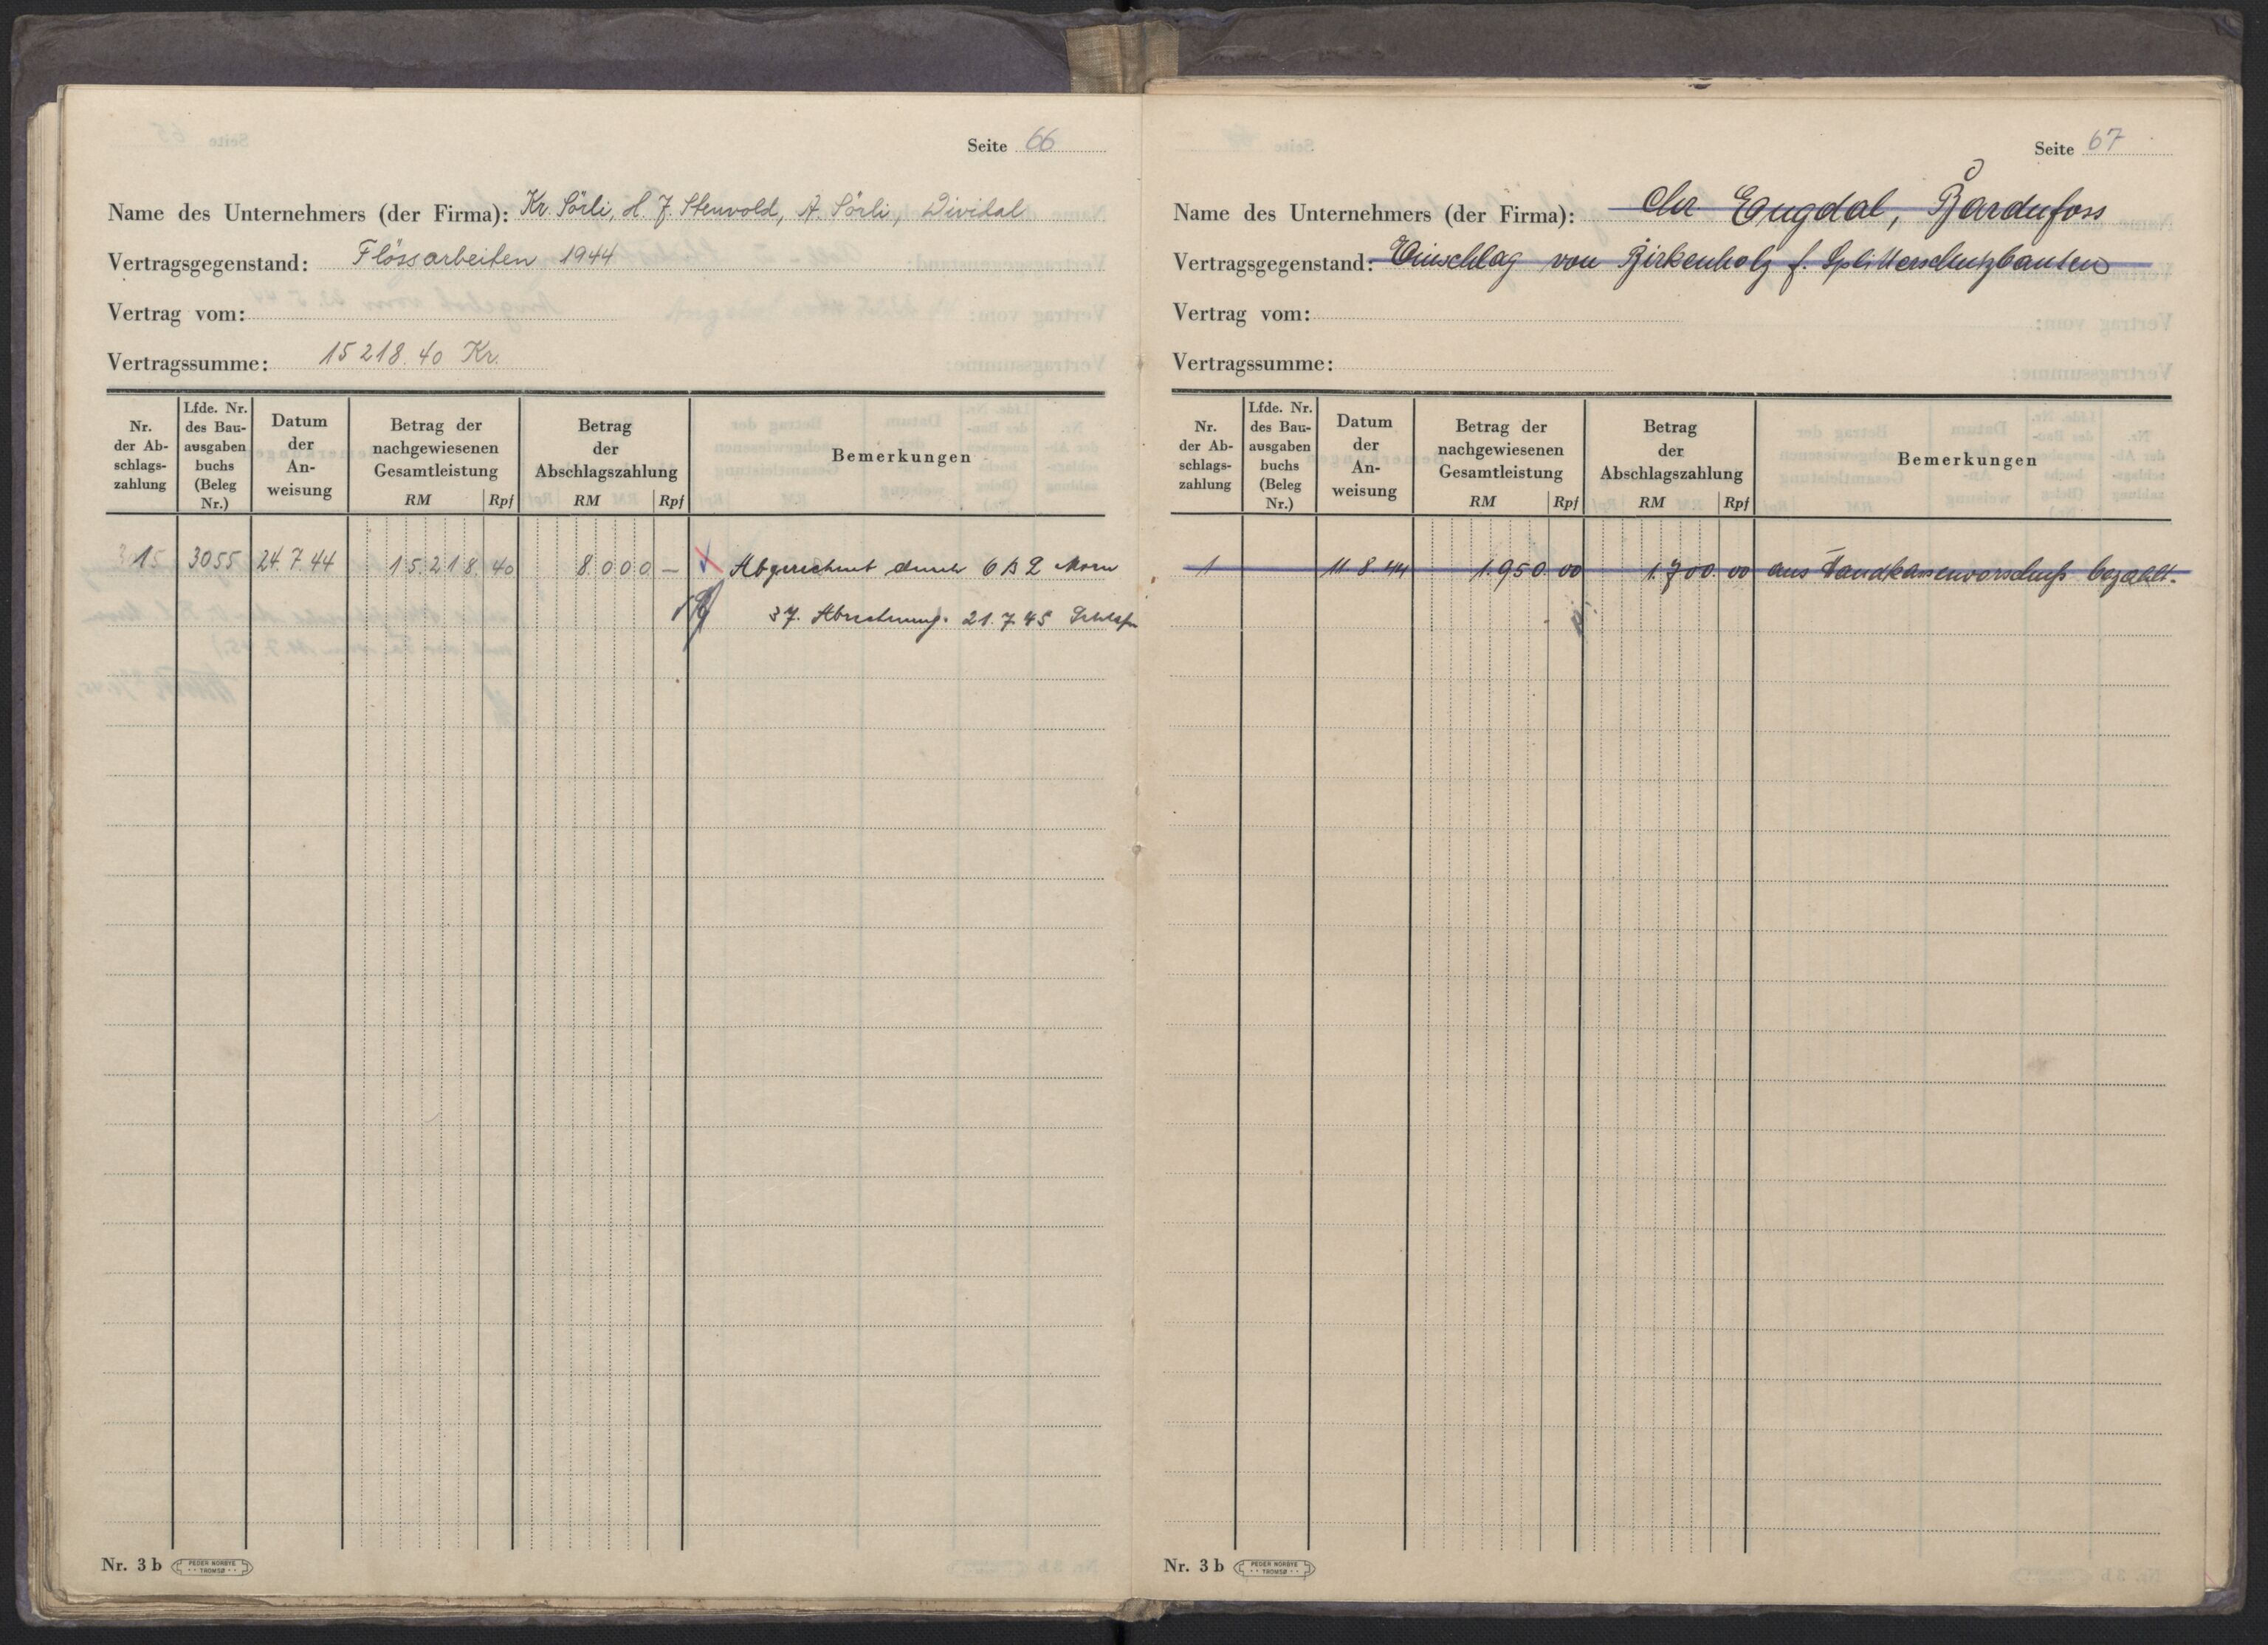 Seite 66
Name des Unternehmers (der Firma): Kr. Sörli, H. J. Stenvold, A. Sörli, Dividal
Vertragsgegenstand: Flössarbeiten 1944
Vertrag vom:
Vertragssumme: 15218.40 Kr.
Nr. der Ab-schlags-zahlung
Lfde. Nr. des Bau-ausgaben buchs (Beleg Nr.)
Datum der An-weisung
Betrag der nachgewiesenen Gesamtleistung
RM Rpf
Betrag der Abschlagszahlung
RM Rpf
Bemerkungen
15 3055 24.7.44 15.218.40 8000 — Abgerechnet durch OBL
37. Abrechnung. 21.7.45
Nr. 3 b PEDER NORBYE TROMSØ
Seite 67
Name des Unternehmers (der Firma): Chr Engdal, Bardufoss
Vertragsgegenstand: Einschlag von Birkenholz f. Splitterschutzbauten
Vertrag vom:
Vertragssumme:
Nr. der Ab-schlags-zahlung
Lfde. Nr. des Bau-ausgaben buchs (Beleg Nr.)
Datum der An-weisung
Betrag der nachgewiesenen Gesamtleistung
RM Rpf
Betrag der Abschlagszahlung
RM Rpf
Bemerkungen
1 11.8.44 1.950.00 1.700.00 aus Handkassenvorschuß bezahlt.
Nr. 3 b PEDER NORBYE TROMSØ